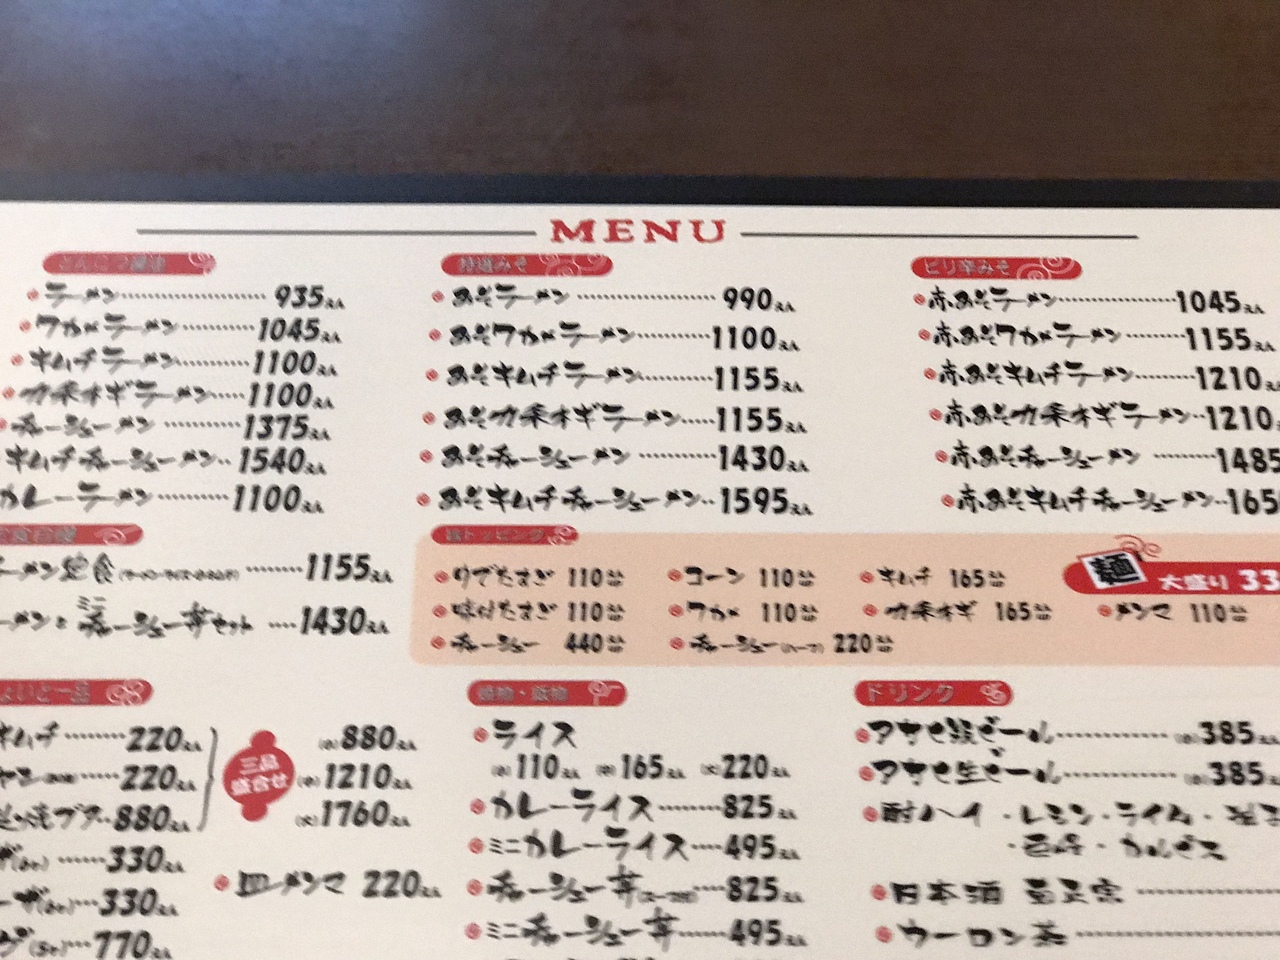 MENU
とんこつ醤油
ラーメン 935えん
ワカメラーメン 1045えん
キムチラーメン 1100えん
九条ネギラーメン 1100えん
チャーシューメン 1375えん
キムチチャーシューメン 1540えん
カレーラーメン 1100えん
特選みそ
みそラーメン 990えん
みそワカメラーメン 1100えん
みそキムチラーメン 1155えん
みそ九条ネギラーメン 1155えん
みそチャーシューメン 1430えん
みそキムチチャーシューメン 1595えん
ピリ辛みそ
赤みそラーメン 1045えん
赤みそワカメラーメン 1155えん
赤みそキムチラーメン 1210え
赤みそ九条ネギラーメン 1210
赤みそチャーシューメン 1485
赤みそキムチチャーシューメン 165
ーメン定食 1155えん
ーメンとミニチャーシュー丼セット 1430えん
麺トッピング
ゆでたまご 110えん
コーン 110えん
キムチ 165えん
麺大盛り 33
味付たまご 110えん
ワカメ 110えん
九条ネギ 165えん
メンマ 110えん
チャーシュー 440えん
チャーシュー(ハーフ) 220えん
ょいと一品
キムチ 220えん
220えん
880えん
三品盛合せ
(小)880えん
(中)1210えん
(大)1760えん
330えん
皿メンマ 220えん
330えん
770えん
焼物・飯物
ライス
(小)110えん (中)165えん (大)220えん
カレーライス 825えん
ミニカレーライス 495えん
チャーシュー丼 825えん
ミニチャーシュー丼 495えん
ドリンク
アサヒ瓶ビール (小)385えん
アサヒ生ビール (小)385えん
酎ハイ・レモン・ライム・
・巨峰・カルピス
日本酒
ウーロン茶